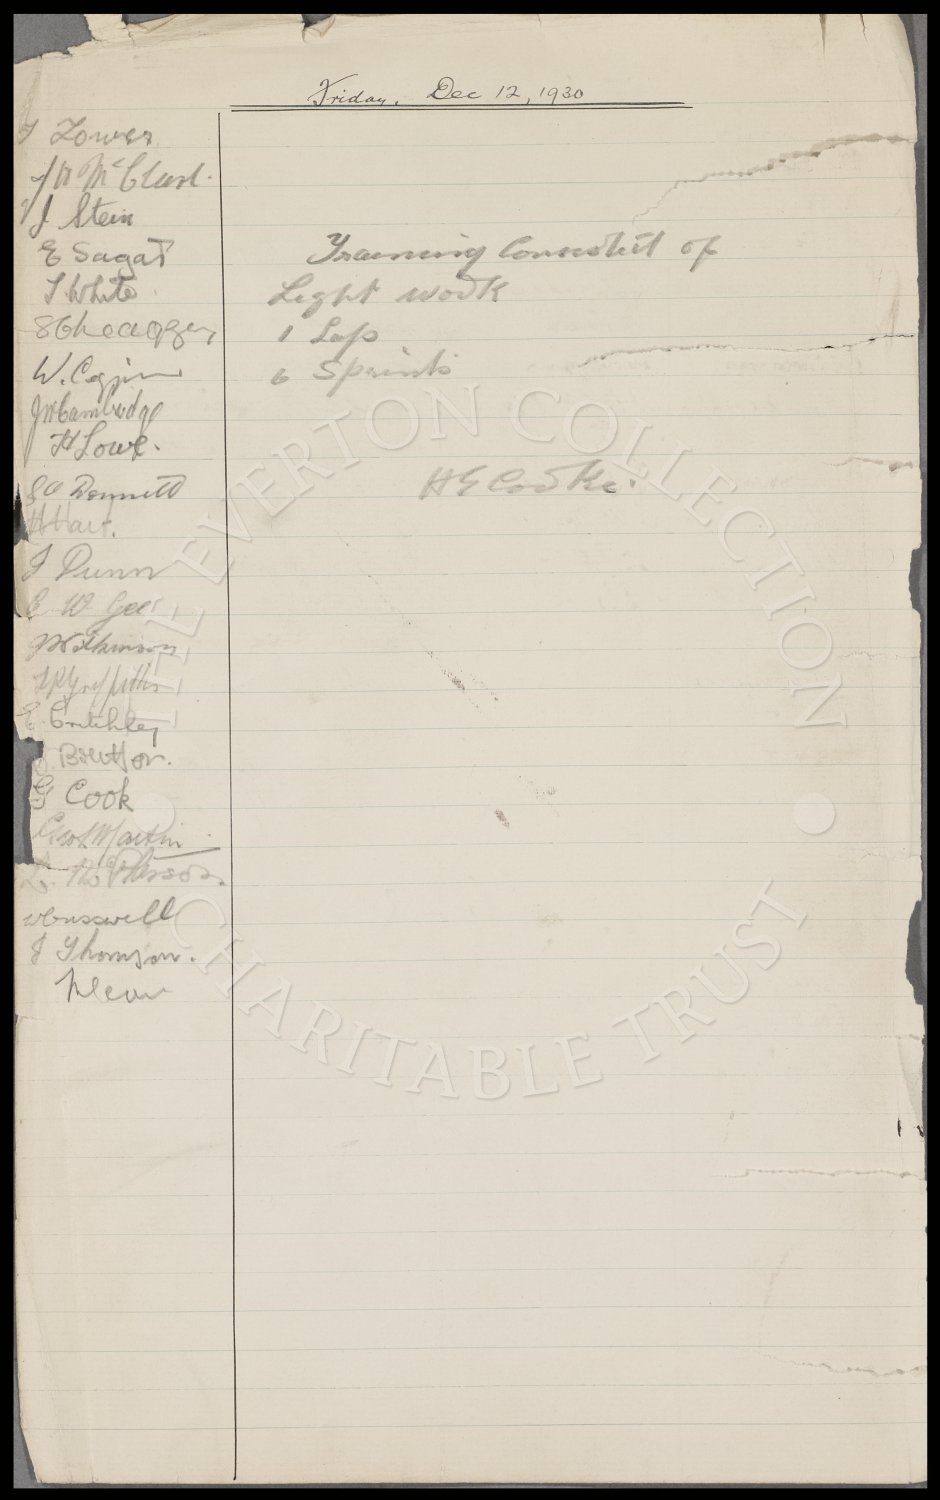 Friday. Dec 12, 1930
J Lowes
J Stein
E Sagar
T White
W. Coggins
JW Cambridge
H Lowe.
SC Bennett
H Hart.
J Dunn
C W Gee
J Wilkinson
T P Griffiths
E Critchley
J. Britton.
G Cook
Geo S Martin
L. McPherson.
W Cresswell
J Thomson.
McLean
Training Consistit of
Light work
1 Lap
6 Sprints
H E Cooke.
THE EVERTON COLLECTION
CHARITABLE TRUST